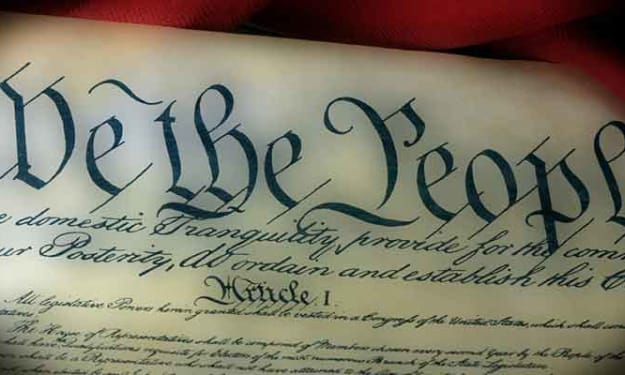 We the Peopl
e domestic Tranquility, provide for the com
ur Posterity, do ordain and establish this C
Article. I.
All legislative Powers herein granted shall be vested in a Congress of the United States, which shall con
The House of Representatives shall be composed of Members chosen every second Year by the People of the
Qualifications requisite for Electors of the most numerous Branch of the State Legislature.
shall be a Representative who shall not have attained to the